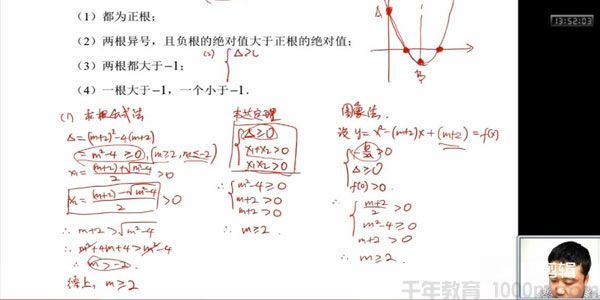 13:52:03
(1) 都为正根;
(2) 两根异号,且负根的绝对值大于正根的绝对值;
(3) 两根都大于-1;
(4) 一根大于-1,一个小于-1.
(2) { Δ≥
A
B
(1) 求根公式法
Δ=(m+2)²-4(m+2)
=m²-4≥0, (m≥2, m≤-2)
x₁=((m+2)+√(m²-4))/2 >0
x₂=((m+2)-√(m²-4))/2 >0
∴ m+2>√(m²-4)
∴ m²+4m+4>m²-4
∴ m>-2.
综上, m≥2
韦达定理
{ Δ≥0
x₁+x₂>0
x₁x₂>0
∴ { m²-4≥0
m+2>0
m+2>0
∴ m≥2.
图象法.
设 y=x²-(m+2)x+(m+2)=f(x)
>0
Δ≥0
f(0)>0.
∴ { (m+2)/2 >0
m²-4≥0
m+2>0
∴ m≥2.
千年教育